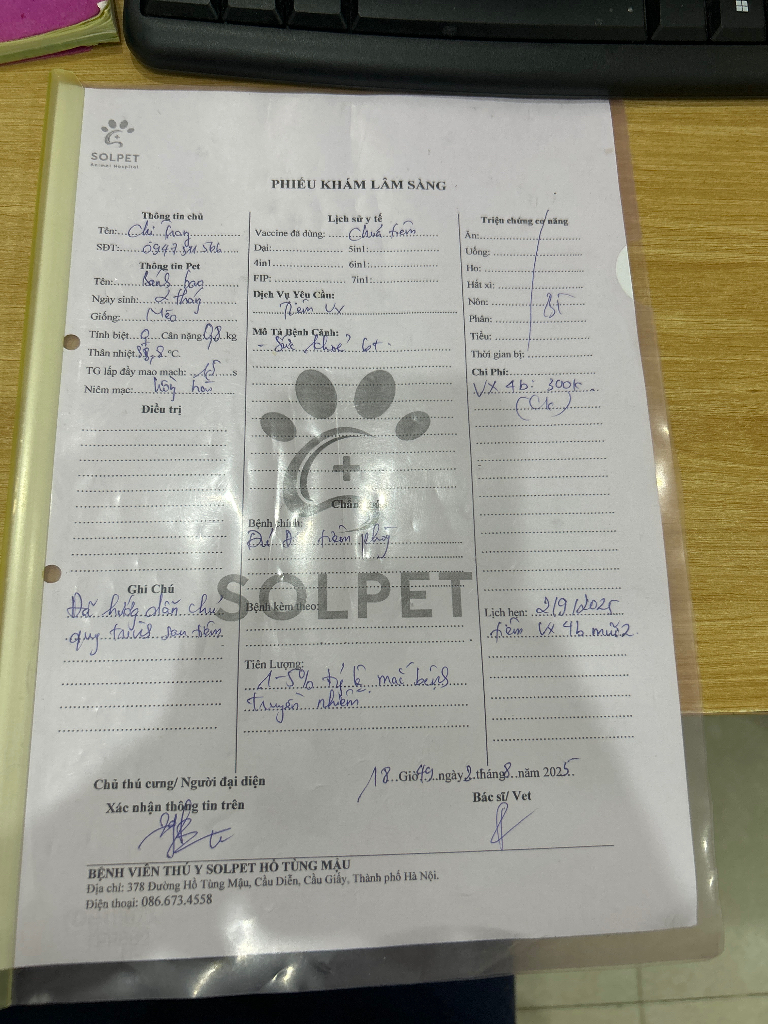 SOLPET
Animal Hospital
PHIẾU KHÁM LÂM SÀNG
Thông tin chủ
Tên: Chị Trang
SĐT: 0947
Thông tin Pet
Tên: Bánh bao
Ngày sinh: 2 tháng
Giống: Mèo
Tính biệt ♀ Cân nặng 0,8 kg
Thân nhiệt 38,8 °C
TG lấp đầy mao mạch: 1,5 s
Niêm mạc: hồng hào
Điều trị
Ghi Chú
Đã hướng dẫn chủ
quy trình sau tiêm
Lịch sử y tế
Vaccine đã dùng: Chưa tiêm
Dại: 5in1:
4in1 6in1:
FIP: 7in1:
Dịch Vụ Yêu Cầu:
Tiêm VX
Mô Tả Bệnh Cảnh:
- Sức khoẻ bt.
Chẩn
Bệnh chính:
tiêm phòng
SOLPET
Bệnh kèm theo:
Tiên Lượng:
1-5% tỷ lệ mắc bệnh
truyền nhiễm
Triệu chứng cơ năng
Ăn:
Uống:
Ho:
Hắt xì:
Nôn: BT
Phân:
Tiểu:
Thời gian bị:
Chi Phí:
VX 4b: 300k
(Ck)
Lịch hẹn: 2/9/2025
tiêm VX 4b mũi 2
18 Giờ 49 ngày 2 tháng 8 năm 2025
Chủ thú cưng/ Người đại diện
Xác nhận thông tin trên
Bác sĩ/ Vet
BỆNH VIỆN THÚ Y SOLPET HỒ TÙNG MẬU
Địa chỉ: 378 Đường Hồ Tùng Mậu, Cầu Diễn, Cầu Giấy, Thành phố Hà Nội.
Điện thoại: 086.673.4558